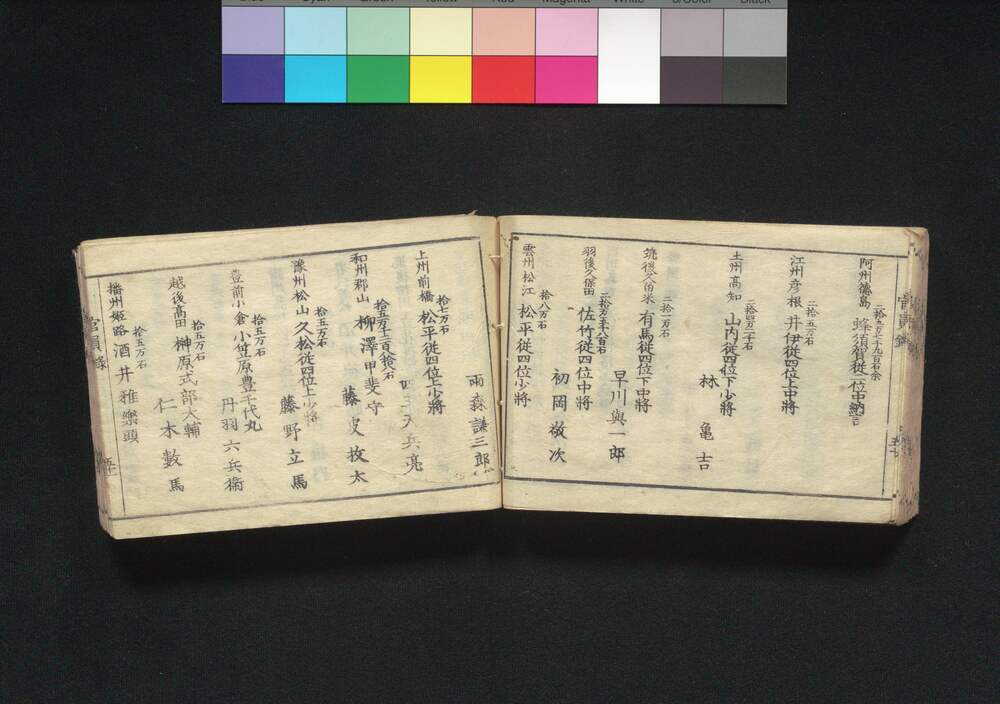 阿州徳島
二拾五万二千九百石余
蜂須賀従二位中納言
江州彦根
二拾五万石
井伊従四位上中将
土州高知
二拾四万二千石
山内従四位下少将
林亀吉
筑後久留米
二拾一万石
有馬従四位下中将
早川與一郎
羽後久保田
二拾万五千八百石
佐竹従四位中将
初岡敬次
雲州松江
拾八万石
松平従四位少将
雨森謙三郎
上州前橋
拾七万石
松平従四位上少将
四王天兵亮
和州郡山
拾五万千二百拾八石
柳澤甲斐守
藤皮抜太
豫州松山
拾五万石
久松従四位上少将
藤野立馬
豊前小倉
拾五万石
小笠原豊千代丸
丹羽六兵衞
越後高田
拾五万石
榊原式部大輔
仁木數馬
播州姫路
拾五万石
酒井雅樂頭